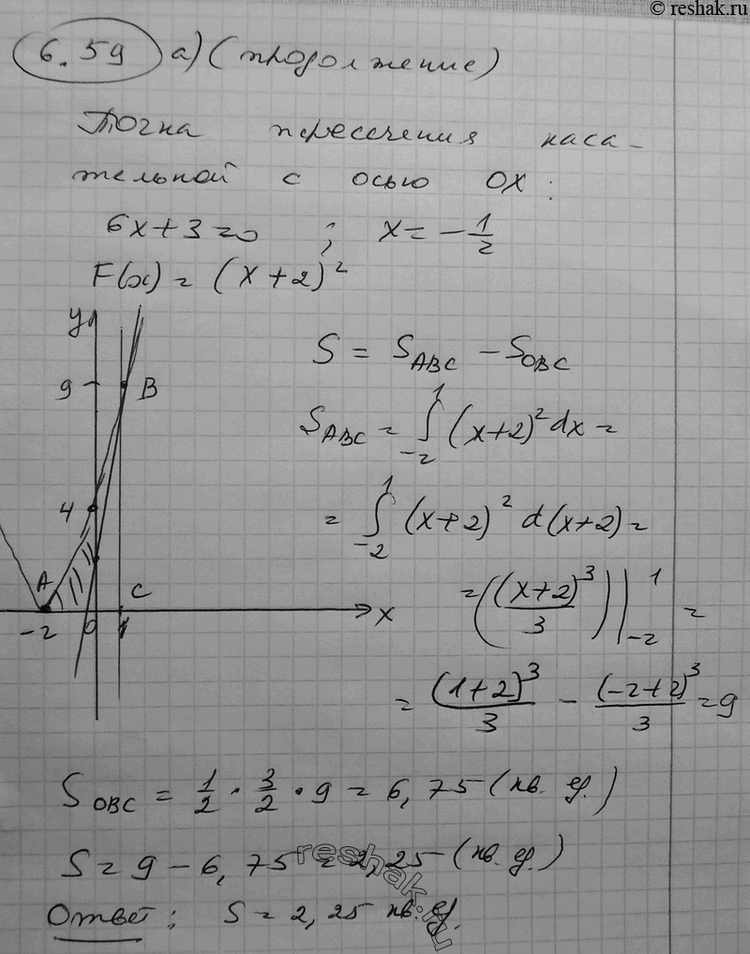 © reshak.ru
6.59 а) (продолжение)
Точка пересечения каса-
тельной с осью OX:
6x+3=0 ; x = -1/2
F(x) = (x+2)²
y
9
B
4
A
C
-2
0
1
x
S = S_ABC - S_OBC
S_ABC = ∫_{-2}^{1} (x+2)² dx =
= ∫_{-2}^{1} (x+2)² d(x+2) =
= ((x+2)³/3)|_{-2}^{1} =
= (1+2)³/3 - (-2+2)³/3 = 9
S_OBC = 1/2 · 3/2 · 9 = 6,75 (кв. ед.)
S = 9 - 6,75 = 2,25 (кв. ед.)
Ответ: S = 2,25 кв. ед.
reshak.ru